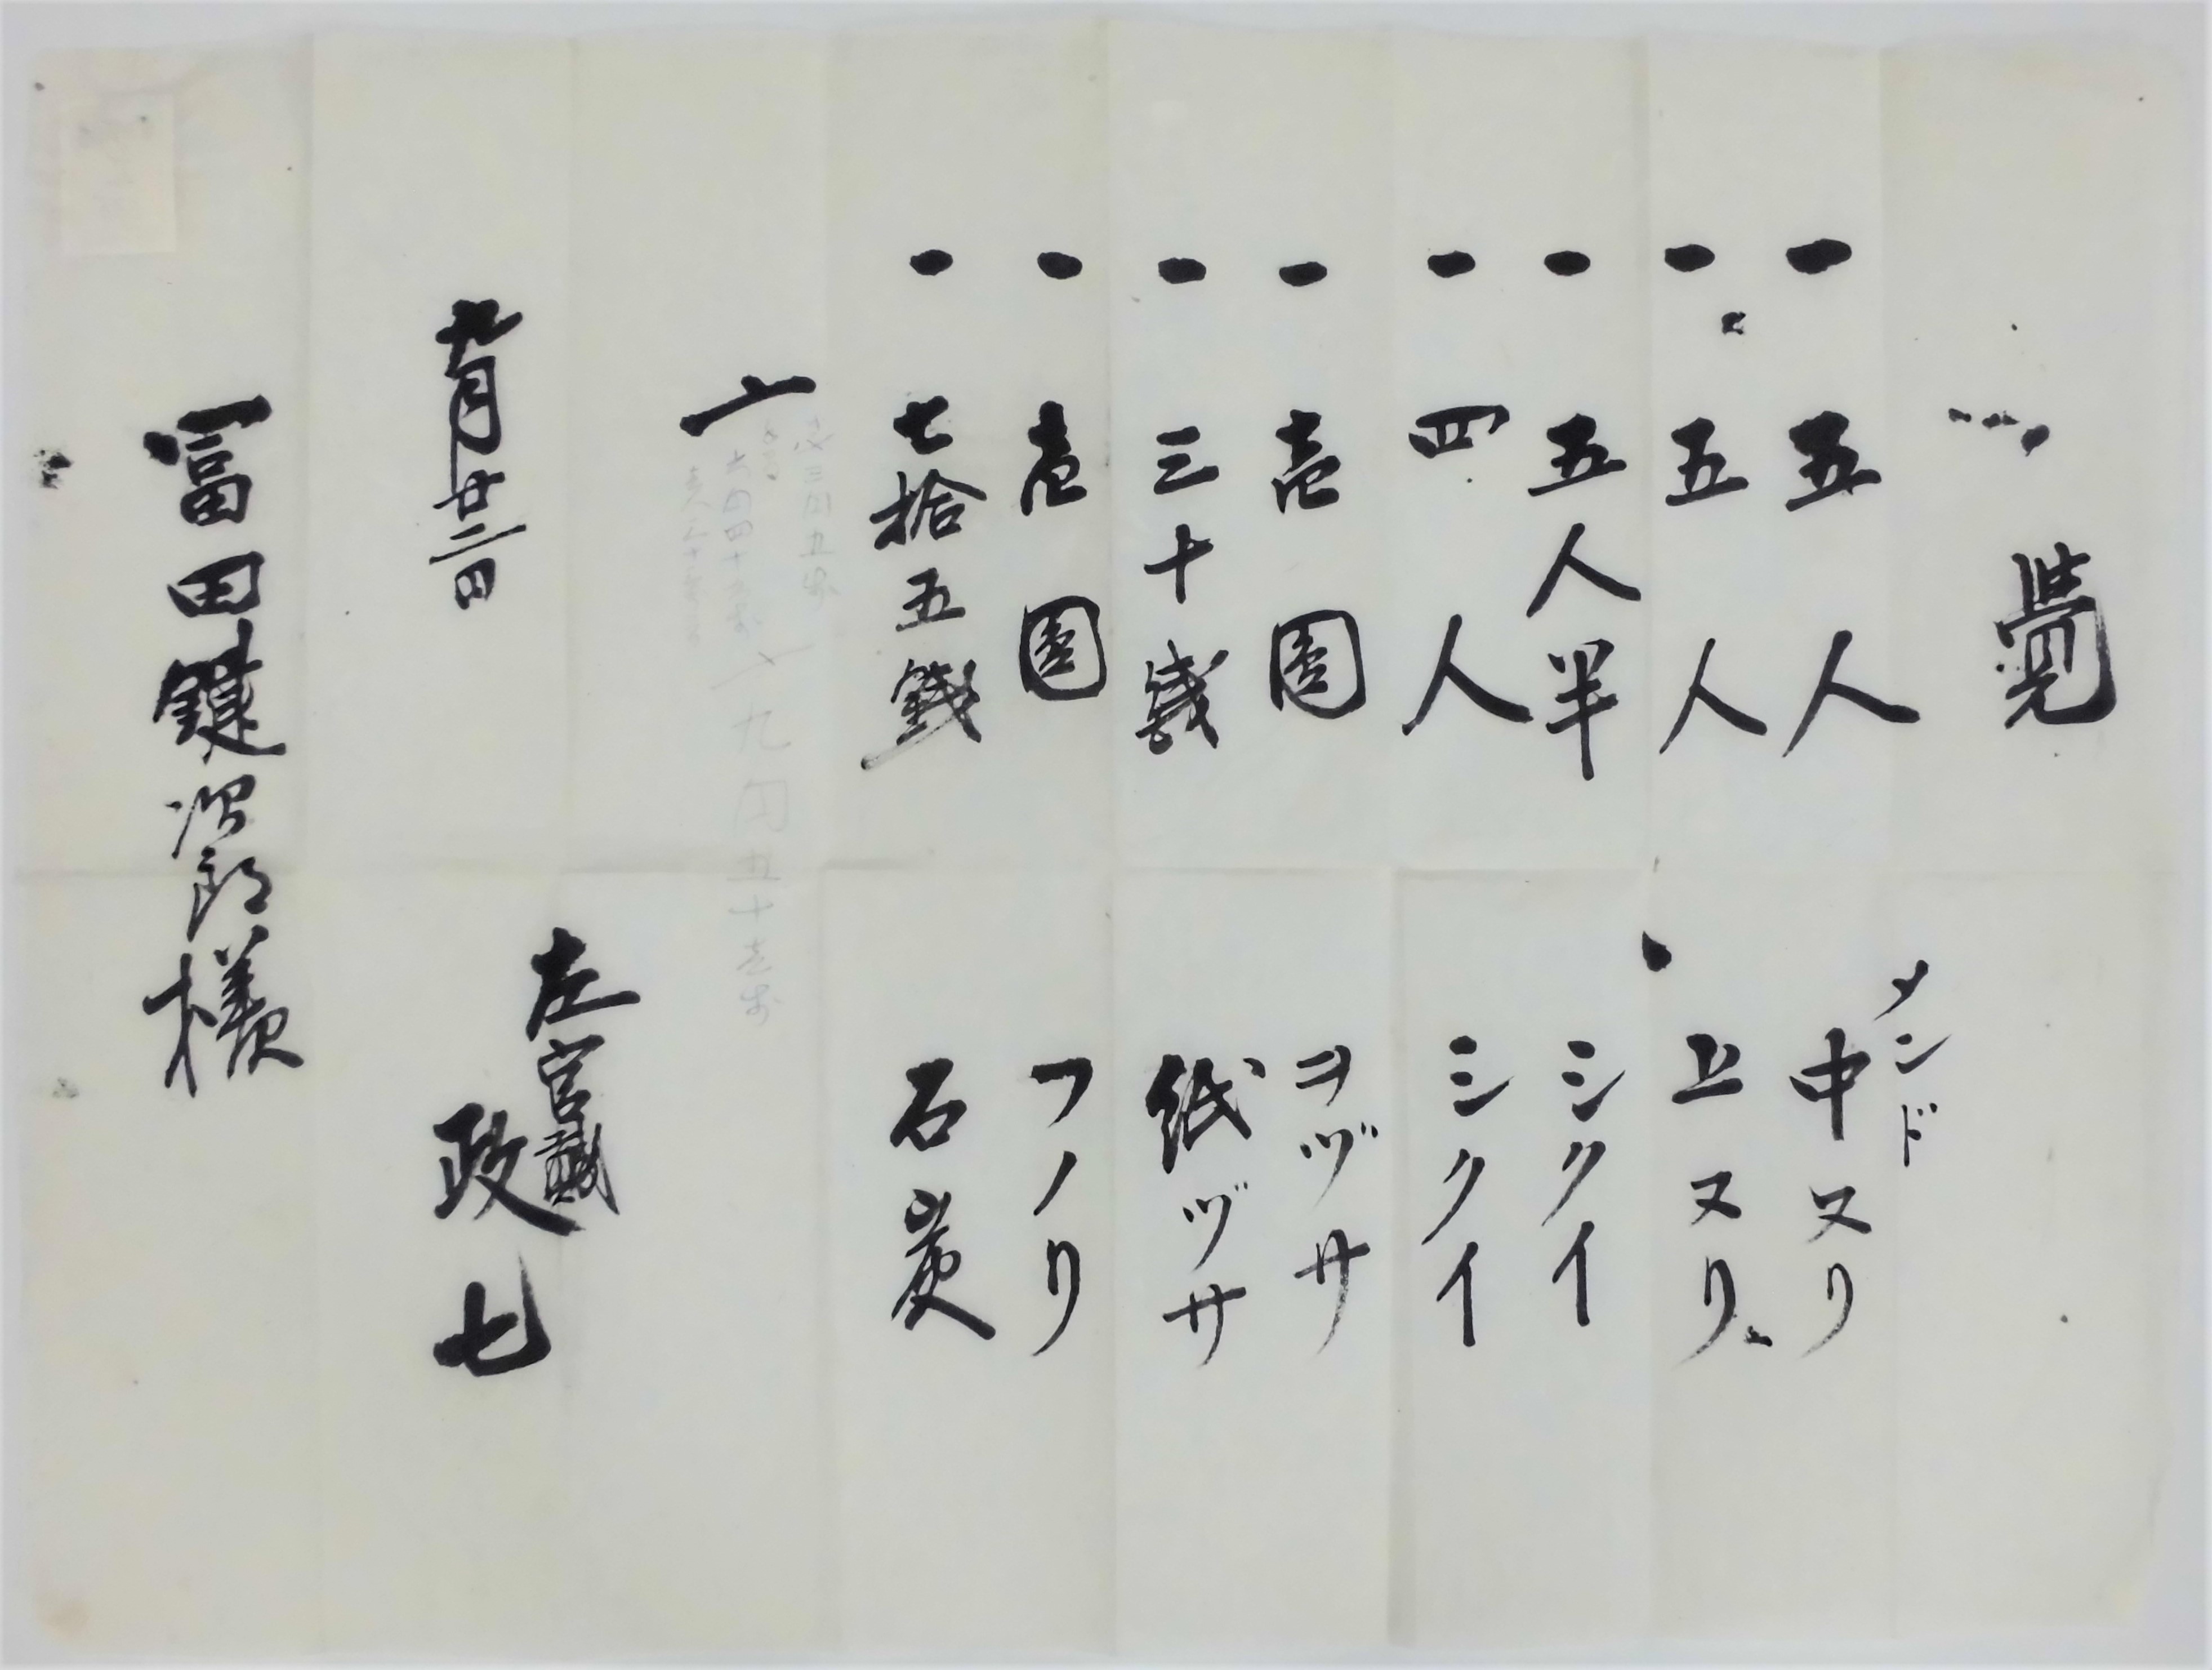 覺
一 五人 メンド 中ヌリ
一 五人 上ヌリ
一 五人半 シクイ
一 四人 シクイ
一 壱圓 ヲヅサ
一 三十銭 紙ヅサ
一 壱圓 フノリ
一 七拾五錢 石炭
〆 九円五十
九月廿二日
左官職
政七
冨田鍵次郎様